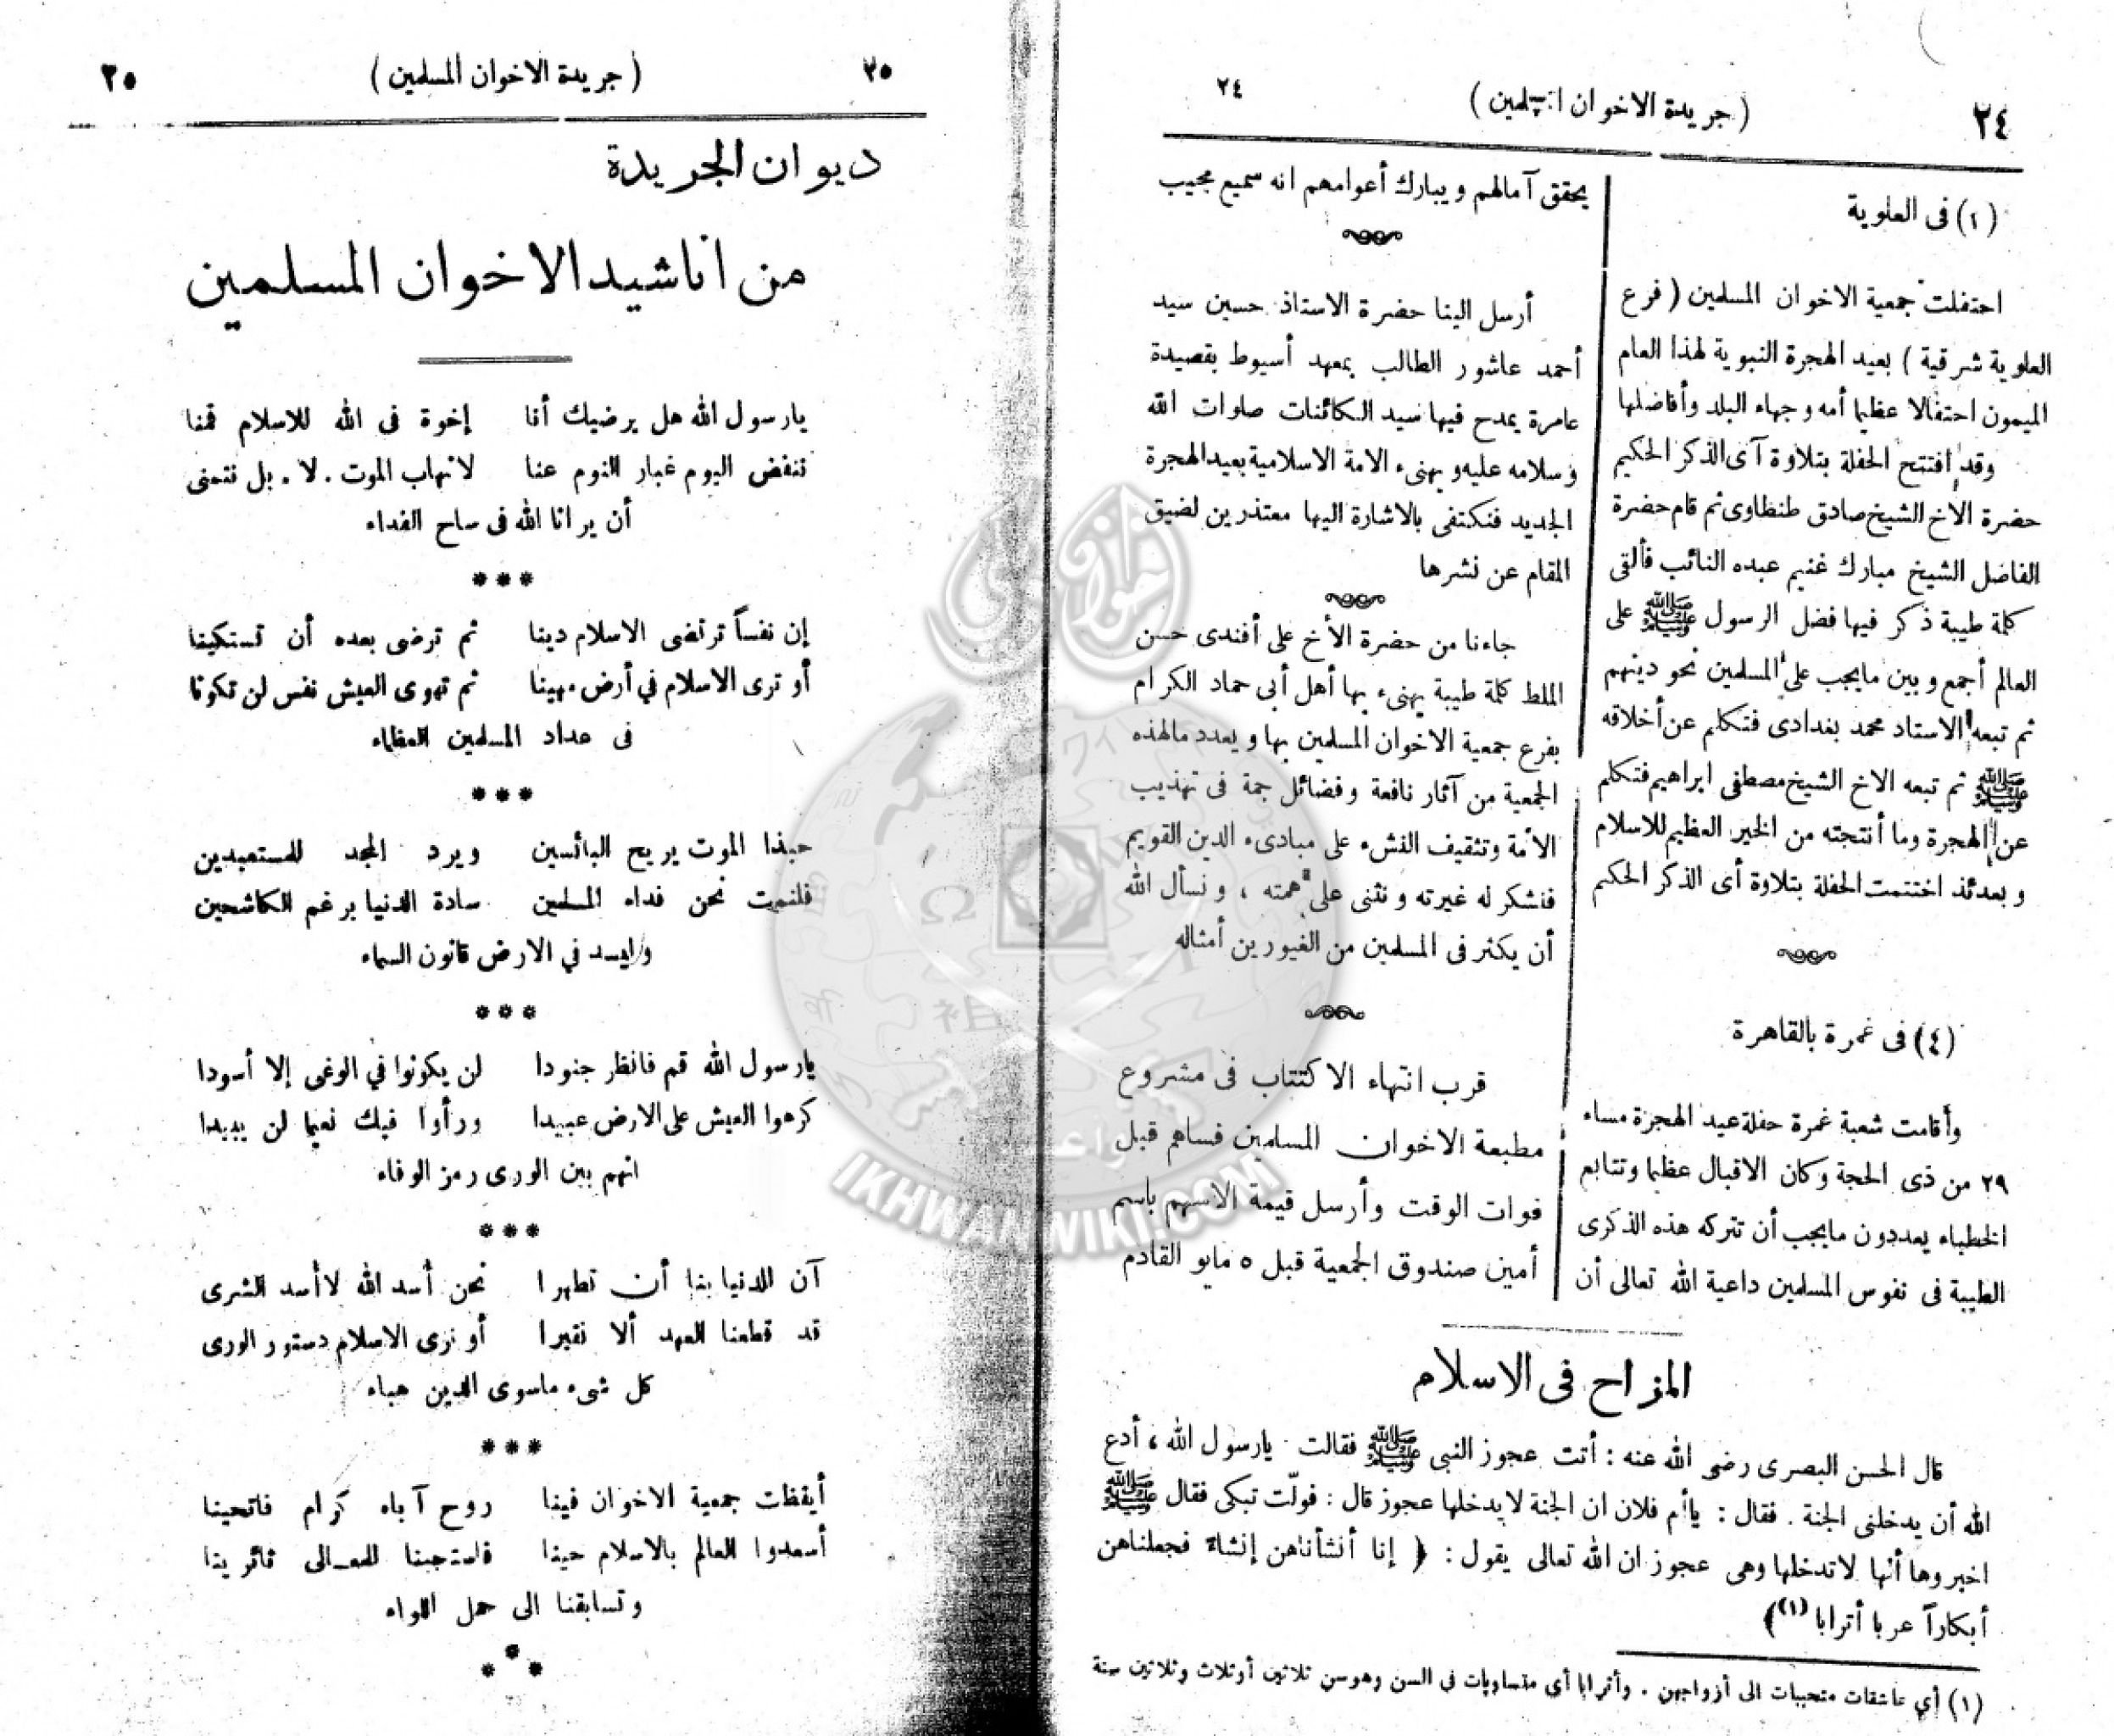 ٢٤
(جريدة الاخوان المسلمين)
٢٤
(٢) فى العلوية
احتفلت جمعية الاخوان المسلمين (فرع
العلوية شرقية) بعيد الهجرة النبوية لهذا العام
الميمون احتفالا عظيما أمه وجهاء البلد وأفاضلها
وقد افتتح الحفلة بتلاوة آى الذكر الحكيم
حضرة الاخ الشيخ صادق طنطاوى ثم قام حضرة
الفاضل الشيخ مبارك غنيم عبده النائب فألقى
كلمة طيبة ذكر فيها فضل الرسول ﷺ على
العالم أجمع وبين مايجب على المسلمين نحو دينهم
ثم تبعه الاستاد محمد بغدادى فتكلم عن أخلاقه
ﷺ ثم تبعه الاخ الشيخ مصطفى ابراهيم فتكلم
عن الهجرة وما أنتجته من الخير العظيم للاسلام
وبعدئذ اختتمت الحفلة بتلاوة أى الذكر الحكيم
(٤) فى غمرة بالقاهرة
وأقامت شعبة غمرة حفلة عيد الهجرة مساء
٢٩ من ذى الحجة وكان الاقبال عظيما وتتابع
الخطباء يعددون مايجب أن تتركه هذه الذكرى
الطيبة فى نفوس المسلمين داعية الله تعالى أن
يحقق آمالهم ويبارك أعوامهم انه سميع مجيب
أرسل الينا حضرة الاستاذ حسين سيد
أحمد عاشور الطالب بمعهد أسيوط بقصيدة
عامرة يمدح فيها سيد الكائنات صلوات الله
وسلامه عليه ويهنىء الامة الاسلامية بعيد الهجرة
الجديد فنكتفى بالاشارة اليها معتذرين لضيق
المقام عن نشرها
جاءنا من حضرة الأخ على أفندى حسن
الملط كلمة طيبة يهنىء بها أهل أبى حماد الكرام
بفرع جمعية الاخوان المسلمين بها ويعدد مالهذه
الجمعية من آثار نافعة وفضائل جمة فى تهذيب
الأمة وتثقيف النشء على مبادىء الدين القويم
فنشكر له غيرته ونثنى على همته ، ونسأل الله
أن يكثر فى المسلمين من الغيورين أمثاله
قرب انتهاء الاكتتاب فى مشروع
مطبعة الاخوان المسلمين فساهم قبل
فوات الوقت وأرسل قيمة الاسهم باسم
أمين صندوق الجمعية قبل ٥ مايو القادم
المزاح فى الاسلام
قال الحسن البصرى رضى الله عنه : أتت عجوز النبى ﷺ فقالت يارسول الله ، أدع
الله أن يدخلنى الجنة . فقال : ياأم فلان ان الجنة لايدخلها عجوز قال : فولّت تبكى فقال ﷺ
اخبروها أنها لاتدخلها وهى عجوز ان الله تعالى يقول : ( إنا أنشأناهن إنشاءً فجعلناهن
أبكاراً عربا أترابا (١))
(١) أي عاشقات متحببات الى أزواجهن . وأترابا أي متساويات في السن وهوسن ثلاثين أوثلاث وثلاثين سنة
٢٥
(جريدة الاخوان المسلمين)
٢٥
ديوان الجريدة
من اناشيد الاخوان المسلمين
يارسول الله هل يرضيك أنا إخوة فى الله للاسلام قمنا
ننفض اليوم غبار النوم عنا لانهاب الموت . لا . بل نتمنى
أن يرانا الله فى ساح الفداء
***
إن نفساً ترتضى الاسلام دينا ثم ترضى بعده أن تستكينا
أو ترى الاسلام في أرض مهينا ثم تهوى العيش نفس لن تكونا
فى عداد المسلمين العظماء
***
حبذا الموت يريح البائسين ويرد المجد للمستعبدين
فلنمت نحن فداء المسلمين سادة الدنيا برغم الكاشحين
وليسد في الارض قانون السماء
***
يارسول الله قم فانظر جنودا لن يكونوا في الوغى إلا أسودا
كرهوا العيش على الارض عبيدا ورأوا فيك نعيما لن يبيدا
انهم بين الورى رمز الوفاء
***
آن للدنيا بنا أن تطهرا نحن أسد الله لاأسد الشرى
قد قطعنا العهد ألا نقبرا أو نرى الاسلام دستور الورى
كل شىء ماسوى الدين هباء
***
أيقظت جمعية الاخوان فينا روح آباء كرام فاتحينا
أسعدوا العالم بالاسلام حينا فاستجبنا للمعالى ثائرينا
وتسابقنا الى حمل اللواء
***
IKHWANWIKI.COM